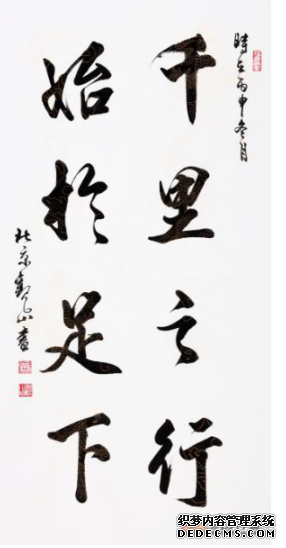 時在丙申冬月
千里之行
始於足下
北京觀山書
织梦内容管理系统
DEDECMS.COM